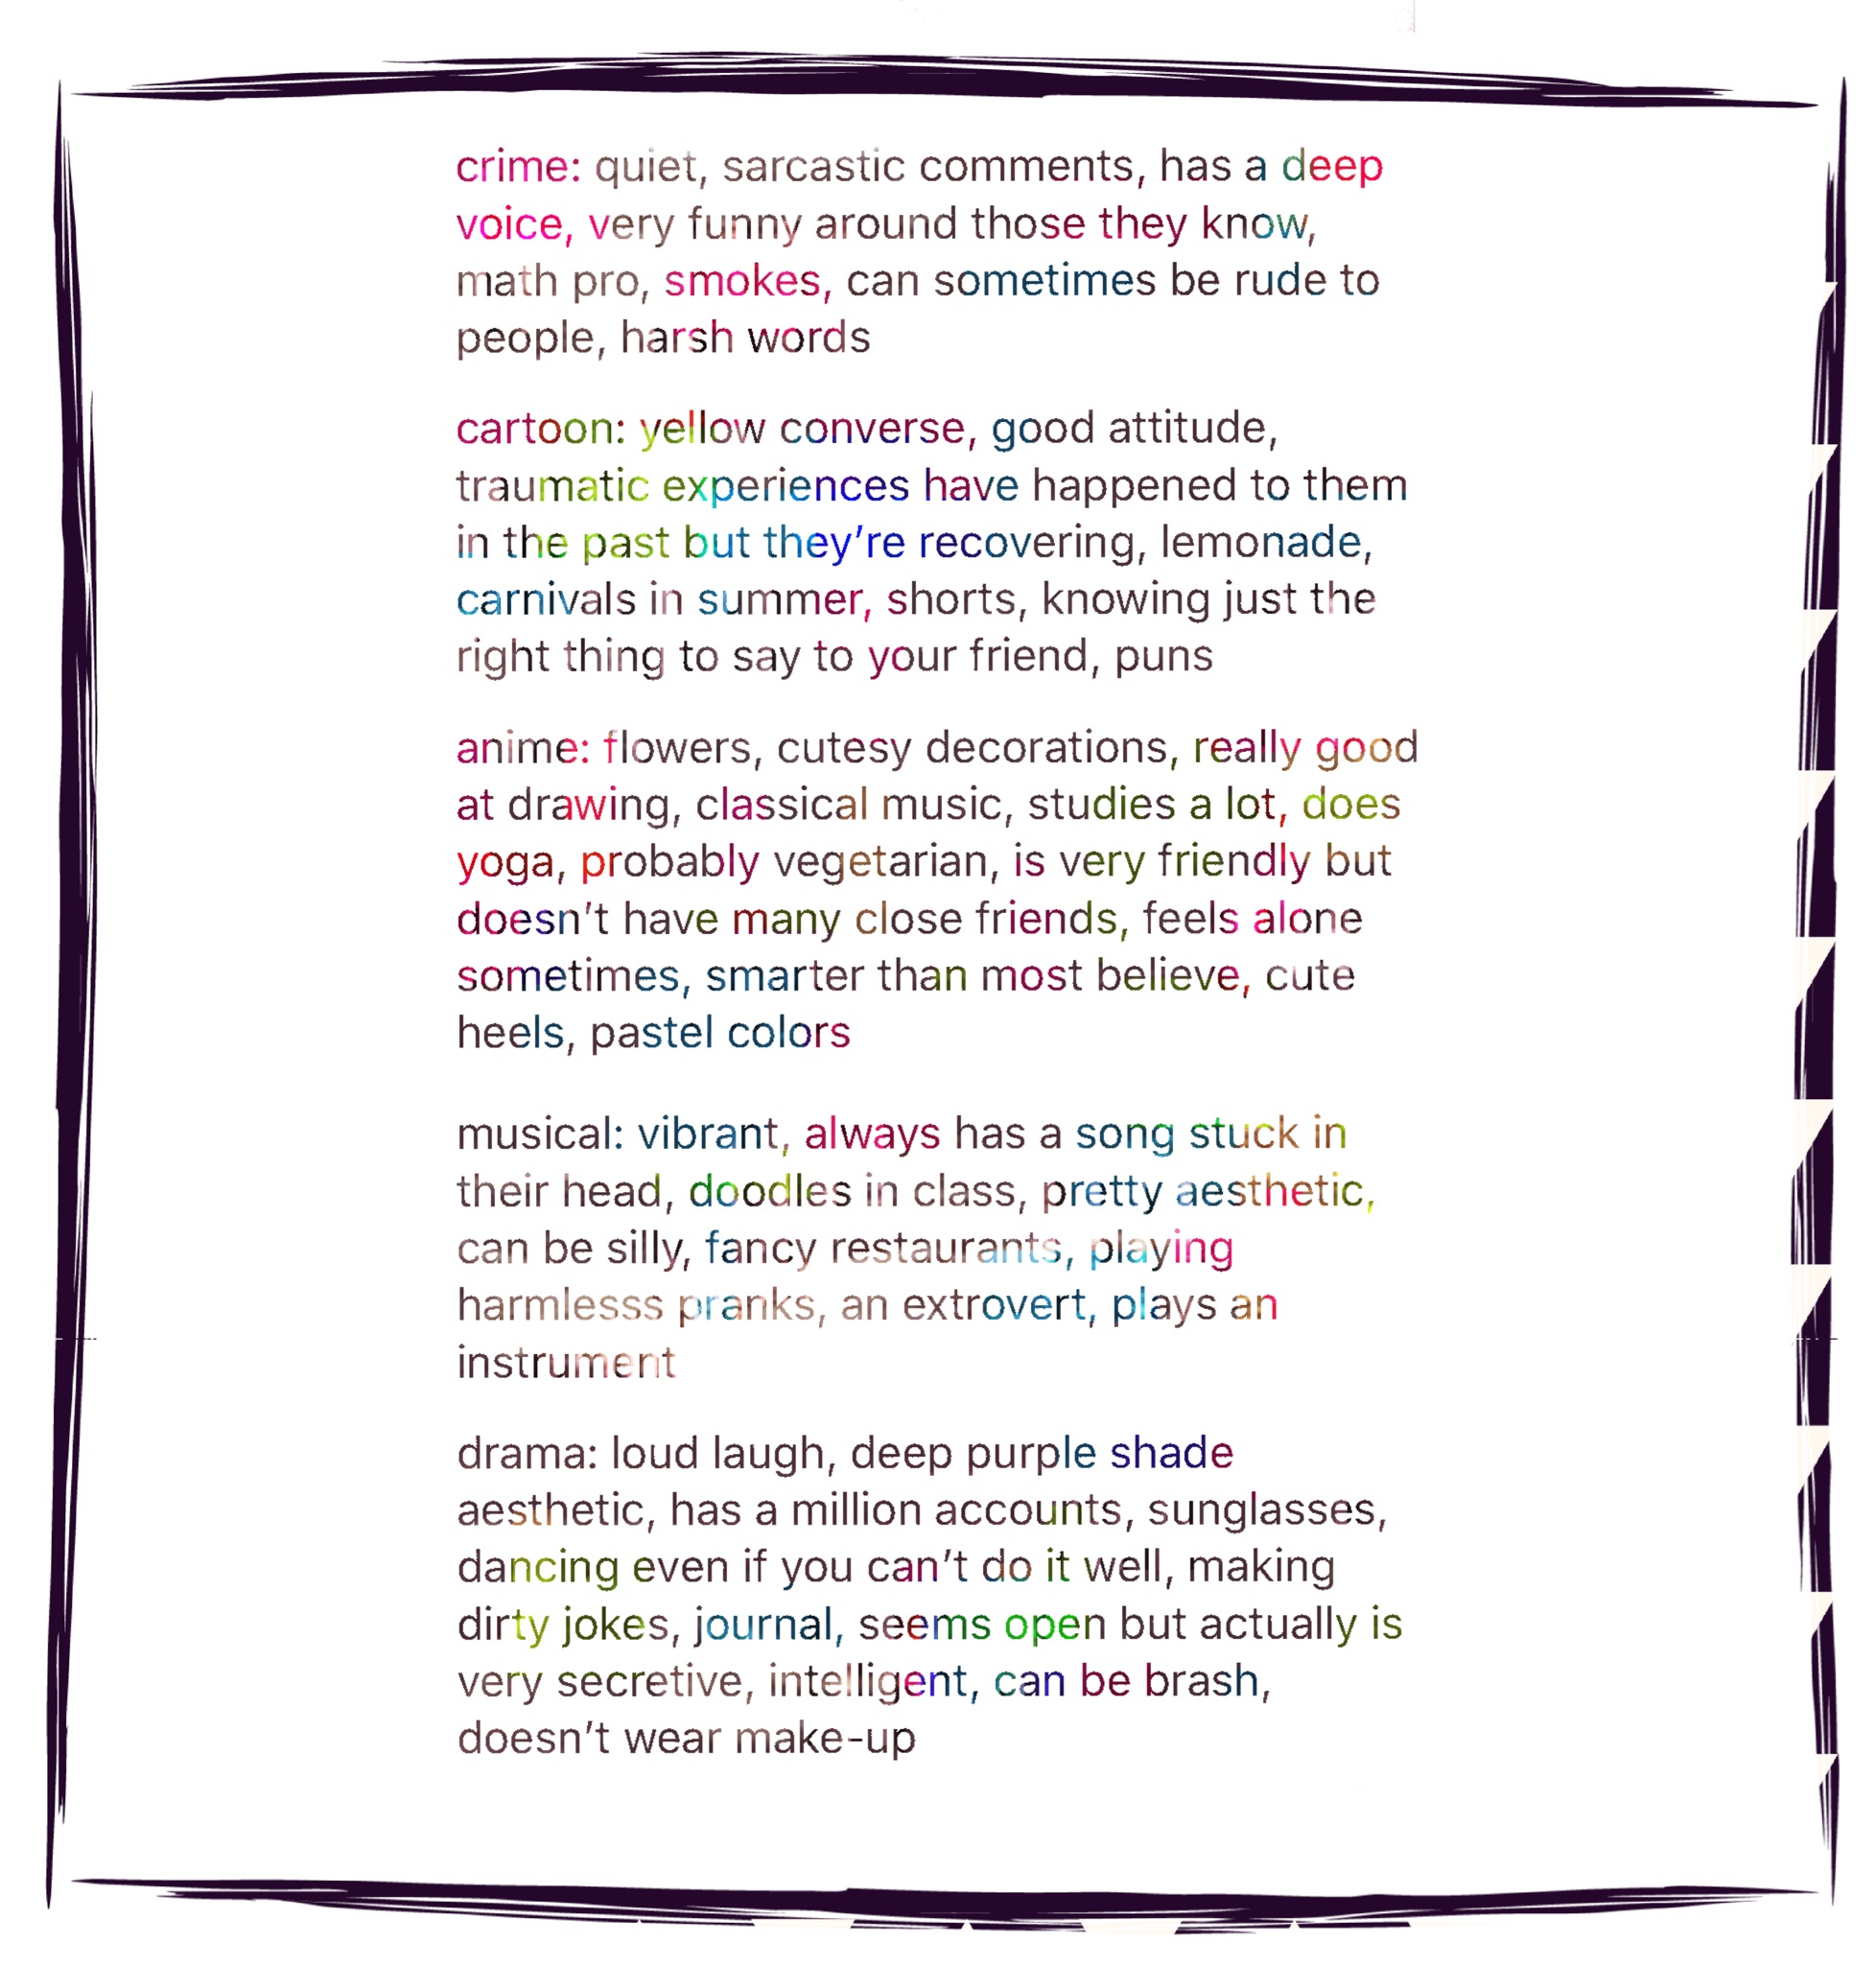 crime: quiet, sarcastic comments, has a deep
voice, very funny around those they know,
math pro, smokes, can sometimes be rude to
people, harsh words
cartoon: yellow converse, good attitude,
traumatic experiences have happened to them
in the past but they’re recovering, lemonade,
carnivals in summer, shorts, knowing just the
right thing to say to your friend, puns
anime: flowers, cutesy decorations, really good
at drawing, classical music, studies a lot, does
yoga, probably vegetarian, is very friendly but
doesn’t have many close friends, feels alone
sometimes, smarter than most believe, cute
heels, pastel colors
musical: vibrant, always has a song stuck in
their head, doodles in class, pretty aesthetic,
can be silly, fancy restaurants, playing
harmlesss pranks, an extrovert, plays an
instrument
drama: loud laugh, deep purple shade
aesthetic, has a million accounts, sunglasses,
dancing even if you can’t do it well, making
dirty jokes, journal, seems open but actually is
very secretive, intelligent, can be brash,
doesn’t wear make-up